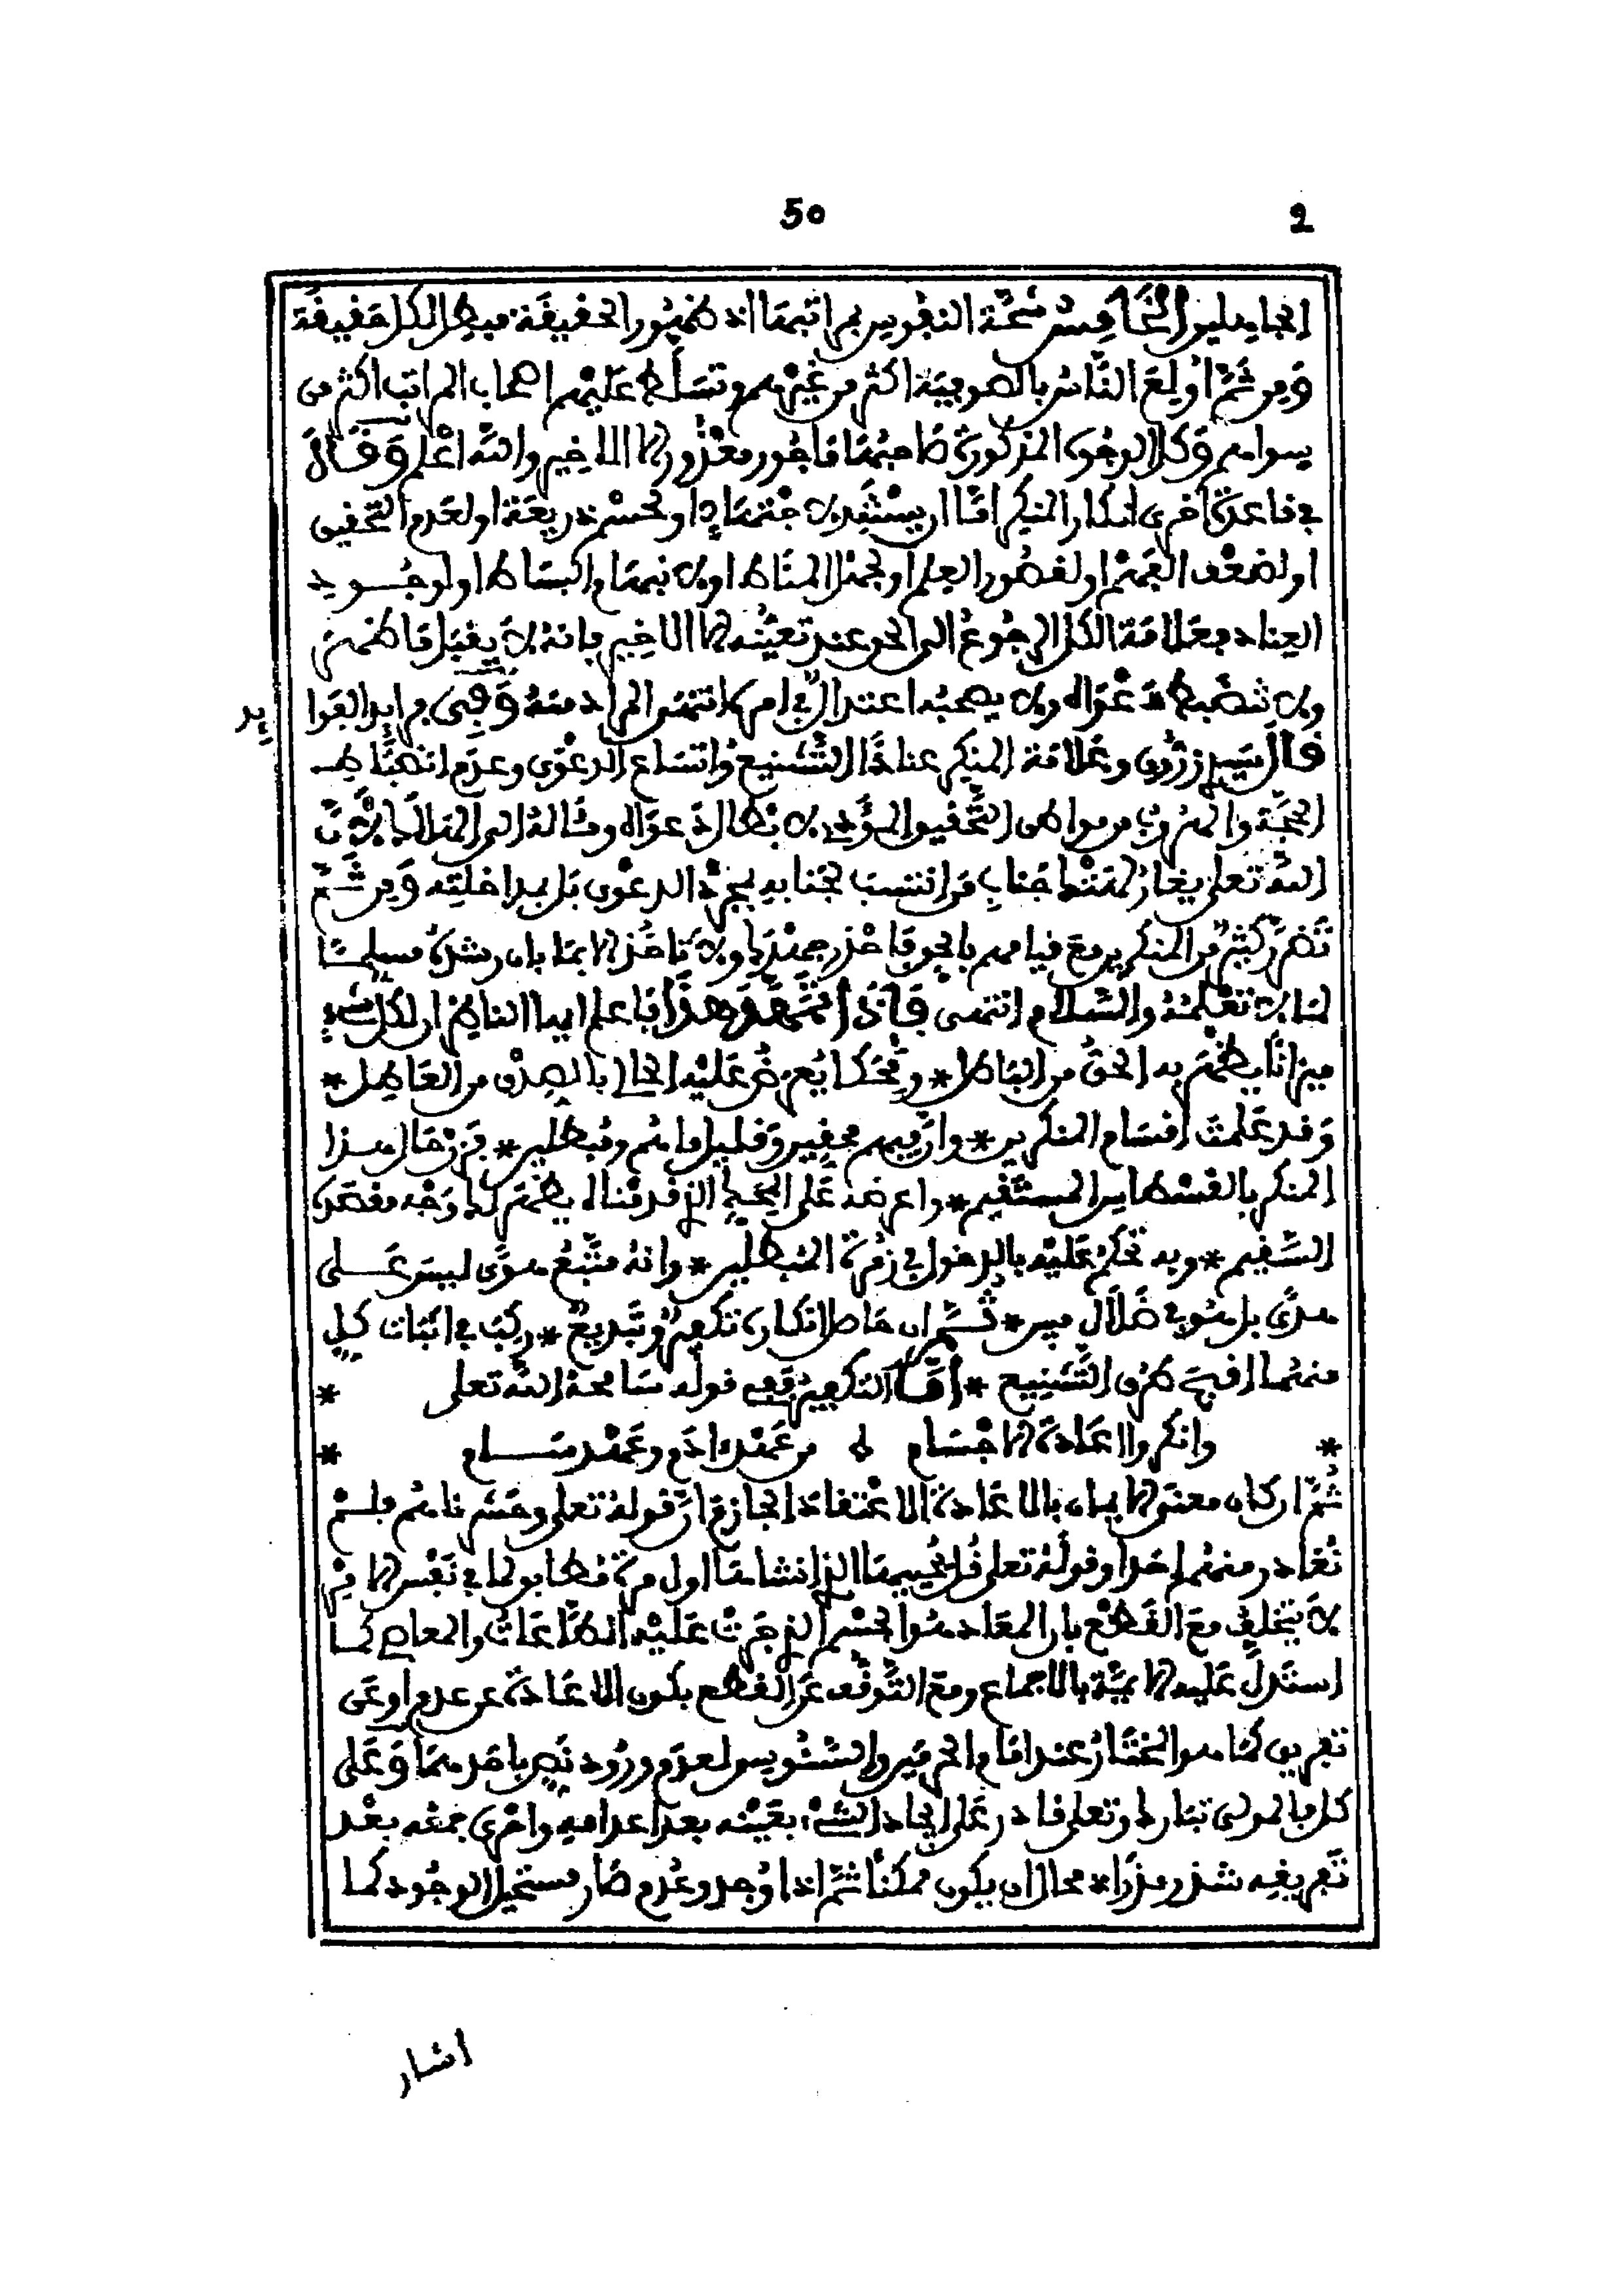 50
2
الجاهلين الخامس شحة النفوس بمراتبها اذ ظهور الحقيقة مبطل لكل حقيقة
ومن ثم اولع الناس بالصوفية اكثر من غيرهم وتسلط عليهم اصحاب المراتب اكثر من
سواهم وكل الوجوه المذكورة صاحبها ماجور معذور الا الاخير والله اعلم وقال
في قاعدة اخرى انكار المنكر اما ان يستند لاجتهاد او لحسم ذريعة او لعدم التحقيق
او لضعف الفهم او لقصور العلم او لجهل المناط او لانبهام البساط او لوجود
العناد فعلامة الكل الرجوع الى الحق عند تعينه الا الاخير فانه لا يقبل ما ظهر
ولا تنضبط دعواه ولا يصحبه اعتدال في امره انتهى المراد منه وفي مرايد الفوا
يد
قال سيدي زروق وعلامة المنكر عنادا التشنيع واتساع الدعوى وعدم انضباط
الحجة والهروب من مواطن التحقيق المؤدي لابطال دعواه ومثاله الى الهلاك لان
الله تعالى يغار لهتك جناب من انتسب لجنابه بمجرد الدعوى بل بمداخلته ومن ثم
تضرر كثير من المنكرين مع قيامهم بالحق فاحذر جهدك ولا تاخذ الا بما بان رشده مسلما
لما لا تعلمه والسلام انتهى فاذا تمهد هذا فاعلم ايها الناظر ان لكل شيء
ميزانا يظهر به الحق من الباطل * ومحكا يعرض عليه الحال بالصدق من العاطل *
وقد علمت اقسام المنكرين * وان فيهم محقين وقليل ما هم ومبطلين * فزن حال هذا
المنكر بالقسطاس المستقيم * واعرضه على المحك الذي قدمنا يظهر لك وجه مقصده
السقيم * وبه تحكم عليه بالدخول في زمرة المبطلين * وانه متبع هوى ليس على
هدى بل هو في ضلال مبين * ثم ان حاصل انكاره تكفير وتبديع * ركب في اثبات كل
منهما اقبح طرق التشنيع * اما التكفير ففي قوله سامحه الله تعالى *
* وانكروا اعادة الاجسام من عهد ادم وعهد سام *
ثم ان كان معنى الايمان بالاعادة الاعتقاد الجازم ان قوله تعالى وحشرناهم فلم
نغادر منهم احدا وقوله تعالى قل يحييها الذي انشاها اول مرة مطابق لما في نفس الامر
لا يتخلف مع القطع بان المعاد هو الجسم الذي جرت عليه الطاعات والمعاصي كما
استدل عليه الايمة بالاجماع ومع التوقف عن القطع بكون الاعادة عن عدم او عن
تفريق كما هو المختار عند امام الحرمين والسنوسي لعدم ورود نص باحدهما وعلى
كل فالمولى تبارك وتعالى قادر على ايجاد الشيء بعينه بعد اعدامه واحرى جمعه بعد
تفريقه شذر مذر * محال ان يكون ممكنا ثم اذا وجد وعدم صار مستحيل الوجود كما
اشار